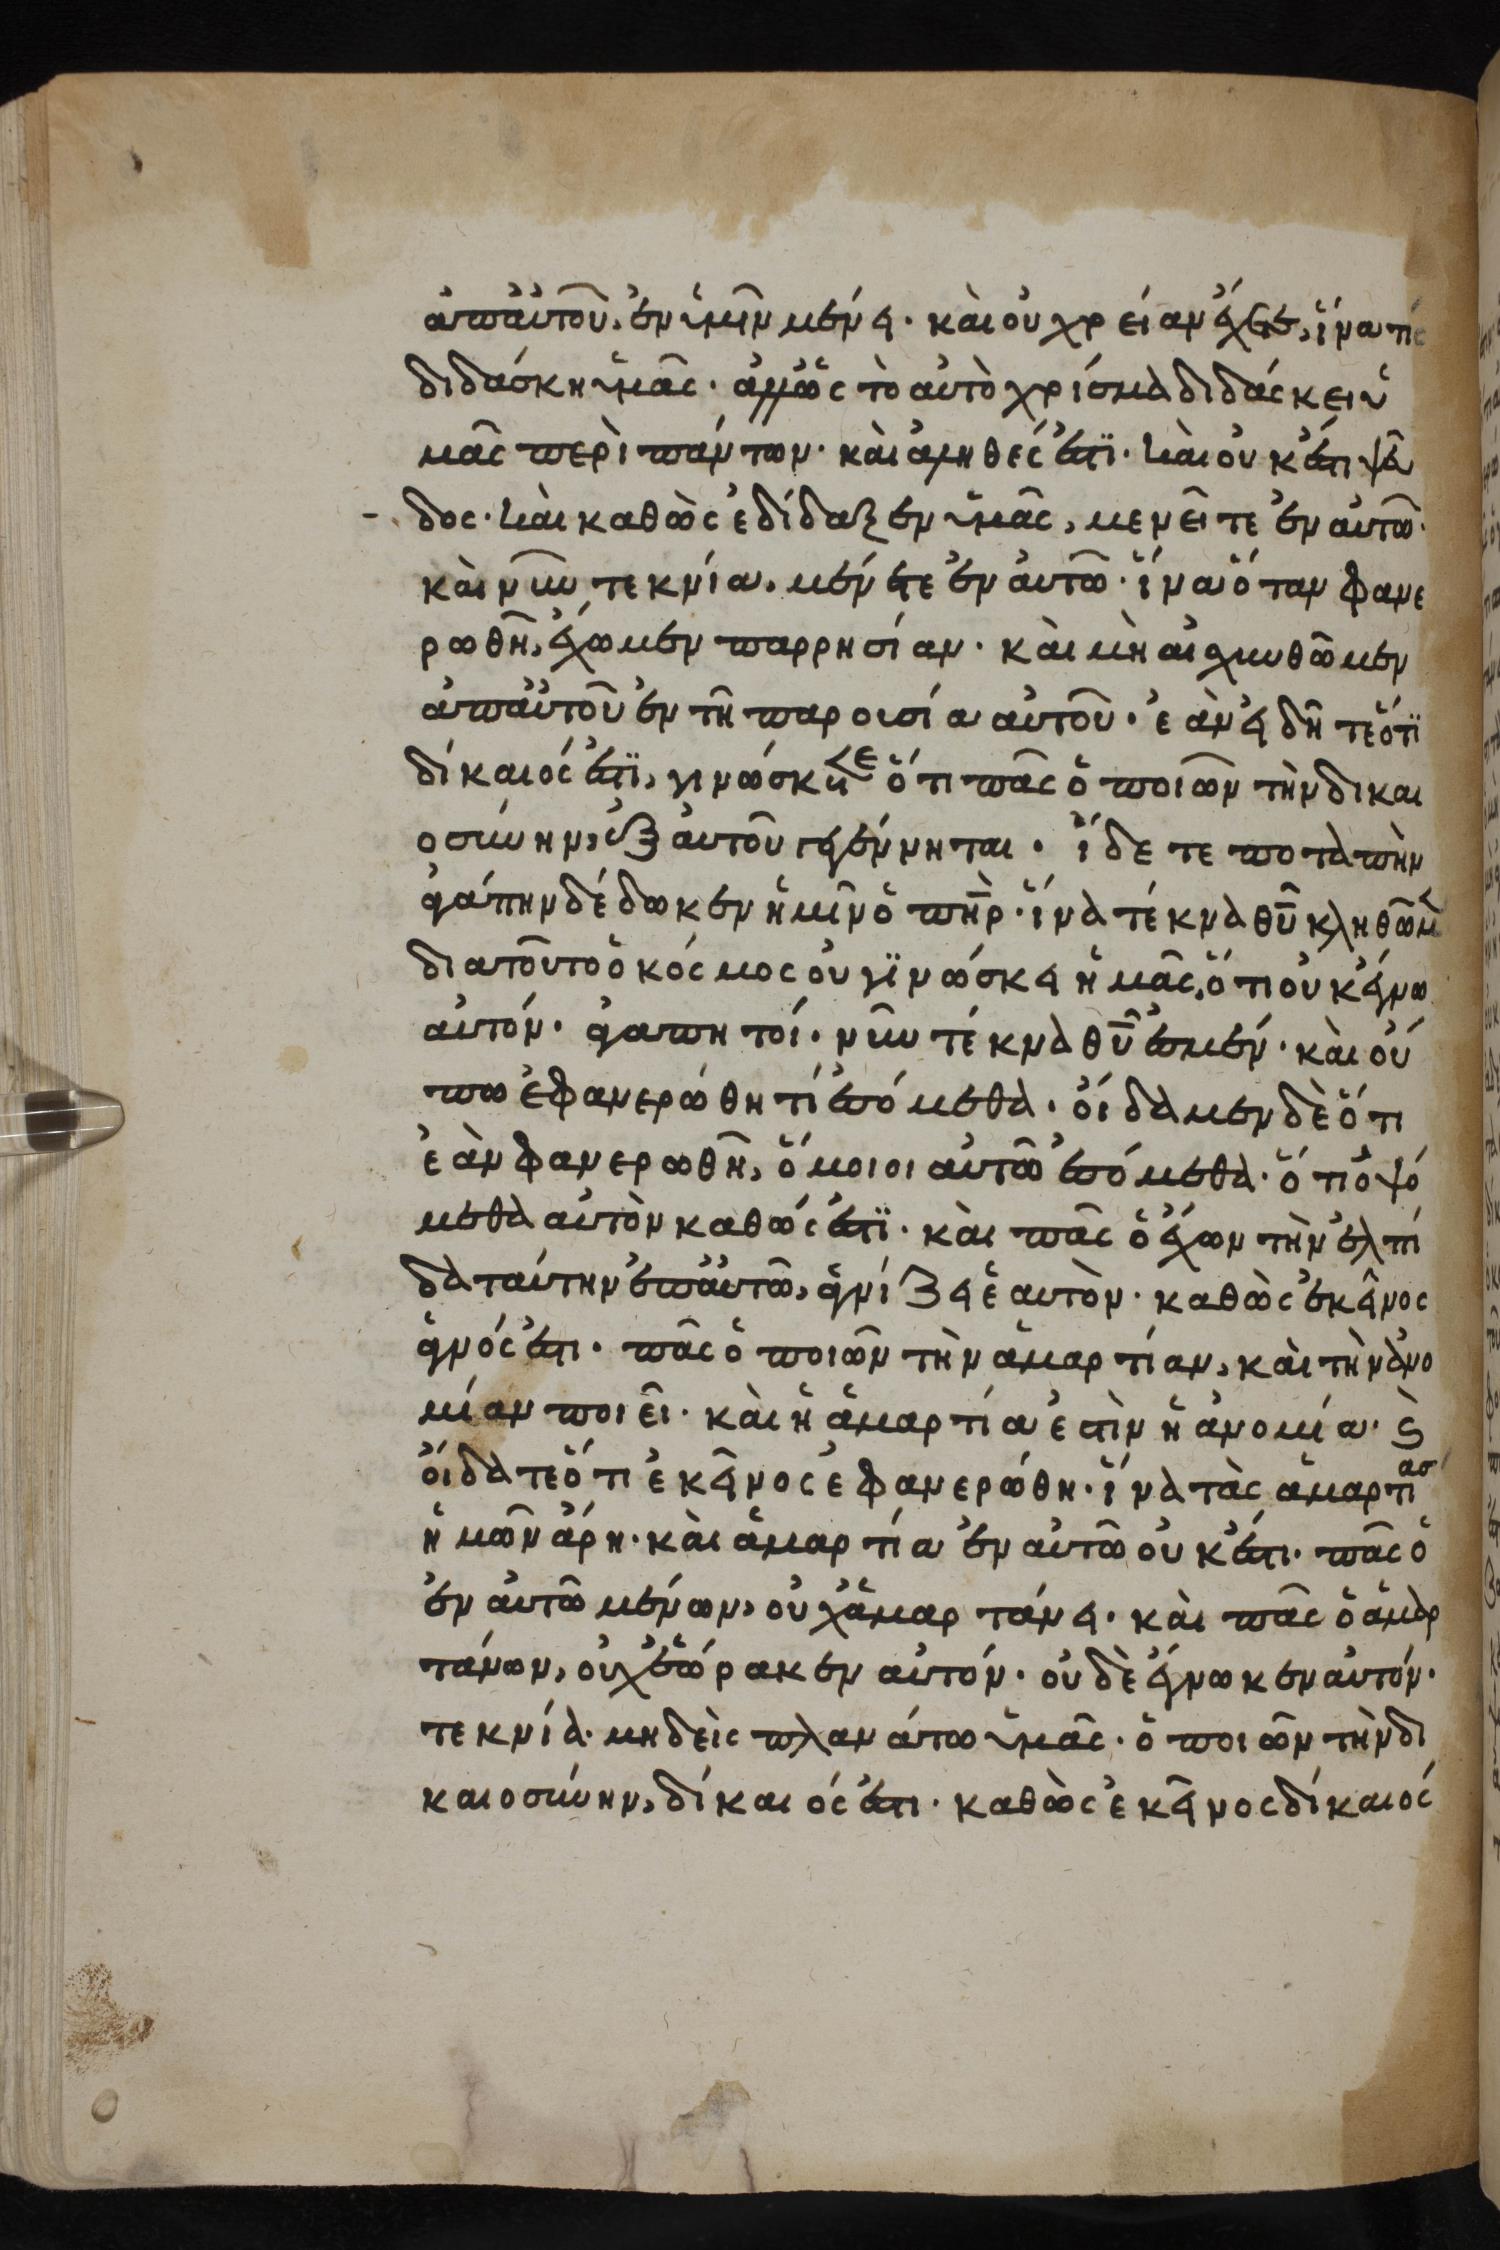 ἀπ' αὐτοῦ, ἐν ὑμῖν μένει· καὶ οὐ χρείαν ἔχετε, ἵνα τίς
διδάσκη ὑμᾶς· ἀλλ' ὡς τὸ αὐτὸ χρίσμα διδάσκει ὑ
μᾶς περὶ πάντων· καὶ ἀληθές ἐστϊ· καὶ οὐκ ἔστι ψεῦ
δος· καὶ καθὼς ἐδίδαξεν ὑμᾶς, μενεῖτε ἐν αὐτῶ·
καὶ νῦν τεκνία, μένετε ἐν αὐτῶ· ἵνα ὅταν φανε
ρωθῆ, ἔχωμεν παρρησίαν· καὶ μὴ αἰσχυνθῶμεν
ἀπ' αὐτοῦ ἐν τῆ παρουσία αὐτοῦ· ἐὰν εἰδῆτε ὅτϊ
δίκαιός ἐστϊ, γινώσκετε ὅτι πᾶς ὁ ποιῶν τὴν δικαι
οσύνην, ἐξ αὐτοῦ γεγέννηται· ἴδετε ποταπὴν
ἀγάπην δέδωκεν ἡμῖν ὁ πὴρ· ἵνα τέκνα θῦ κληθῶμ
διατοῦτο ὁ κόσμος οὐ γϊνώσκει ἡμᾶς, ὅτι οὐκ ἔγνω
αὐτόν· ἀγαπητοί· νῦν τέκνα θῦ ἐσμέν· καὶ οὔ
πω ἐφανερώθη τί ἐσόμεθα· οἴδαμεν δὲ ὅτι
ἐὰν φανερωθῆ, ὅμοιοι αὐτῶ ἐσόμεθα· ὅτι ὀψό
μεθα αὐτὸν καθώς ἐστϊ· καὶ πᾶς ὁ ἔχων τὴν ἐλπί
δα ταύτην ἐπ' αὐτῶ, ἁγνίζει ἑαυτὸν· καθὼς ἐκεῖνος
ἁγνός ἐστι· πᾶς ὁ ποιῶν τὴν ἁμαρτίαν, καὶ τὴν ἀνο
μίαν ποιεῖ· καὶ ἡ ἁμαρτία ἐστὶν ἡ ἀνομία· ϗ
οἴδατε ὅτι ἐκεῖνος ἐφανερώθη· ἵνα τὰς ἁμαρτίασ
ἡμῶν ἄρη· καὶ ἁμαρτία ἐν αὐτῶ οὐκ ἔστι· πᾶς ὁ
ἐν αὐτῶ μένων, οὐχ ἁμαρτάνει· καὶ πᾶς ὁ ἁμαρ
τάνων, οὐχ ἑώρακεν αὐτόν· οὐδὲ ἔγνωκεν αὐτόν·
τεκνία· μηδεὶς πλανάτω ὑμᾶς· ὁ ποιῶν τὴν δι
καιοσύνην, δίκαιός ἐστι· καθὼς ἐκεῖνος δίκαιός